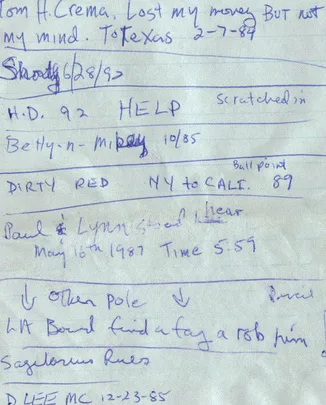 Tom H. Crema, Lost my money BUT not
my mind. To Texas 2-7-84
Shorty 6/28/92
H.D. 92 HELP Scratched in
Betty-n-Mikey 10/85
Ball point
DIRTY RED NY to CALI. 89
hear
Paul & Lynn stood
May 16th 1987 Time 5:59
↓ Other Pole ↓
LA Bound find a fag a rob him
Sagitarius Rules
D LEE MC 12-23-85